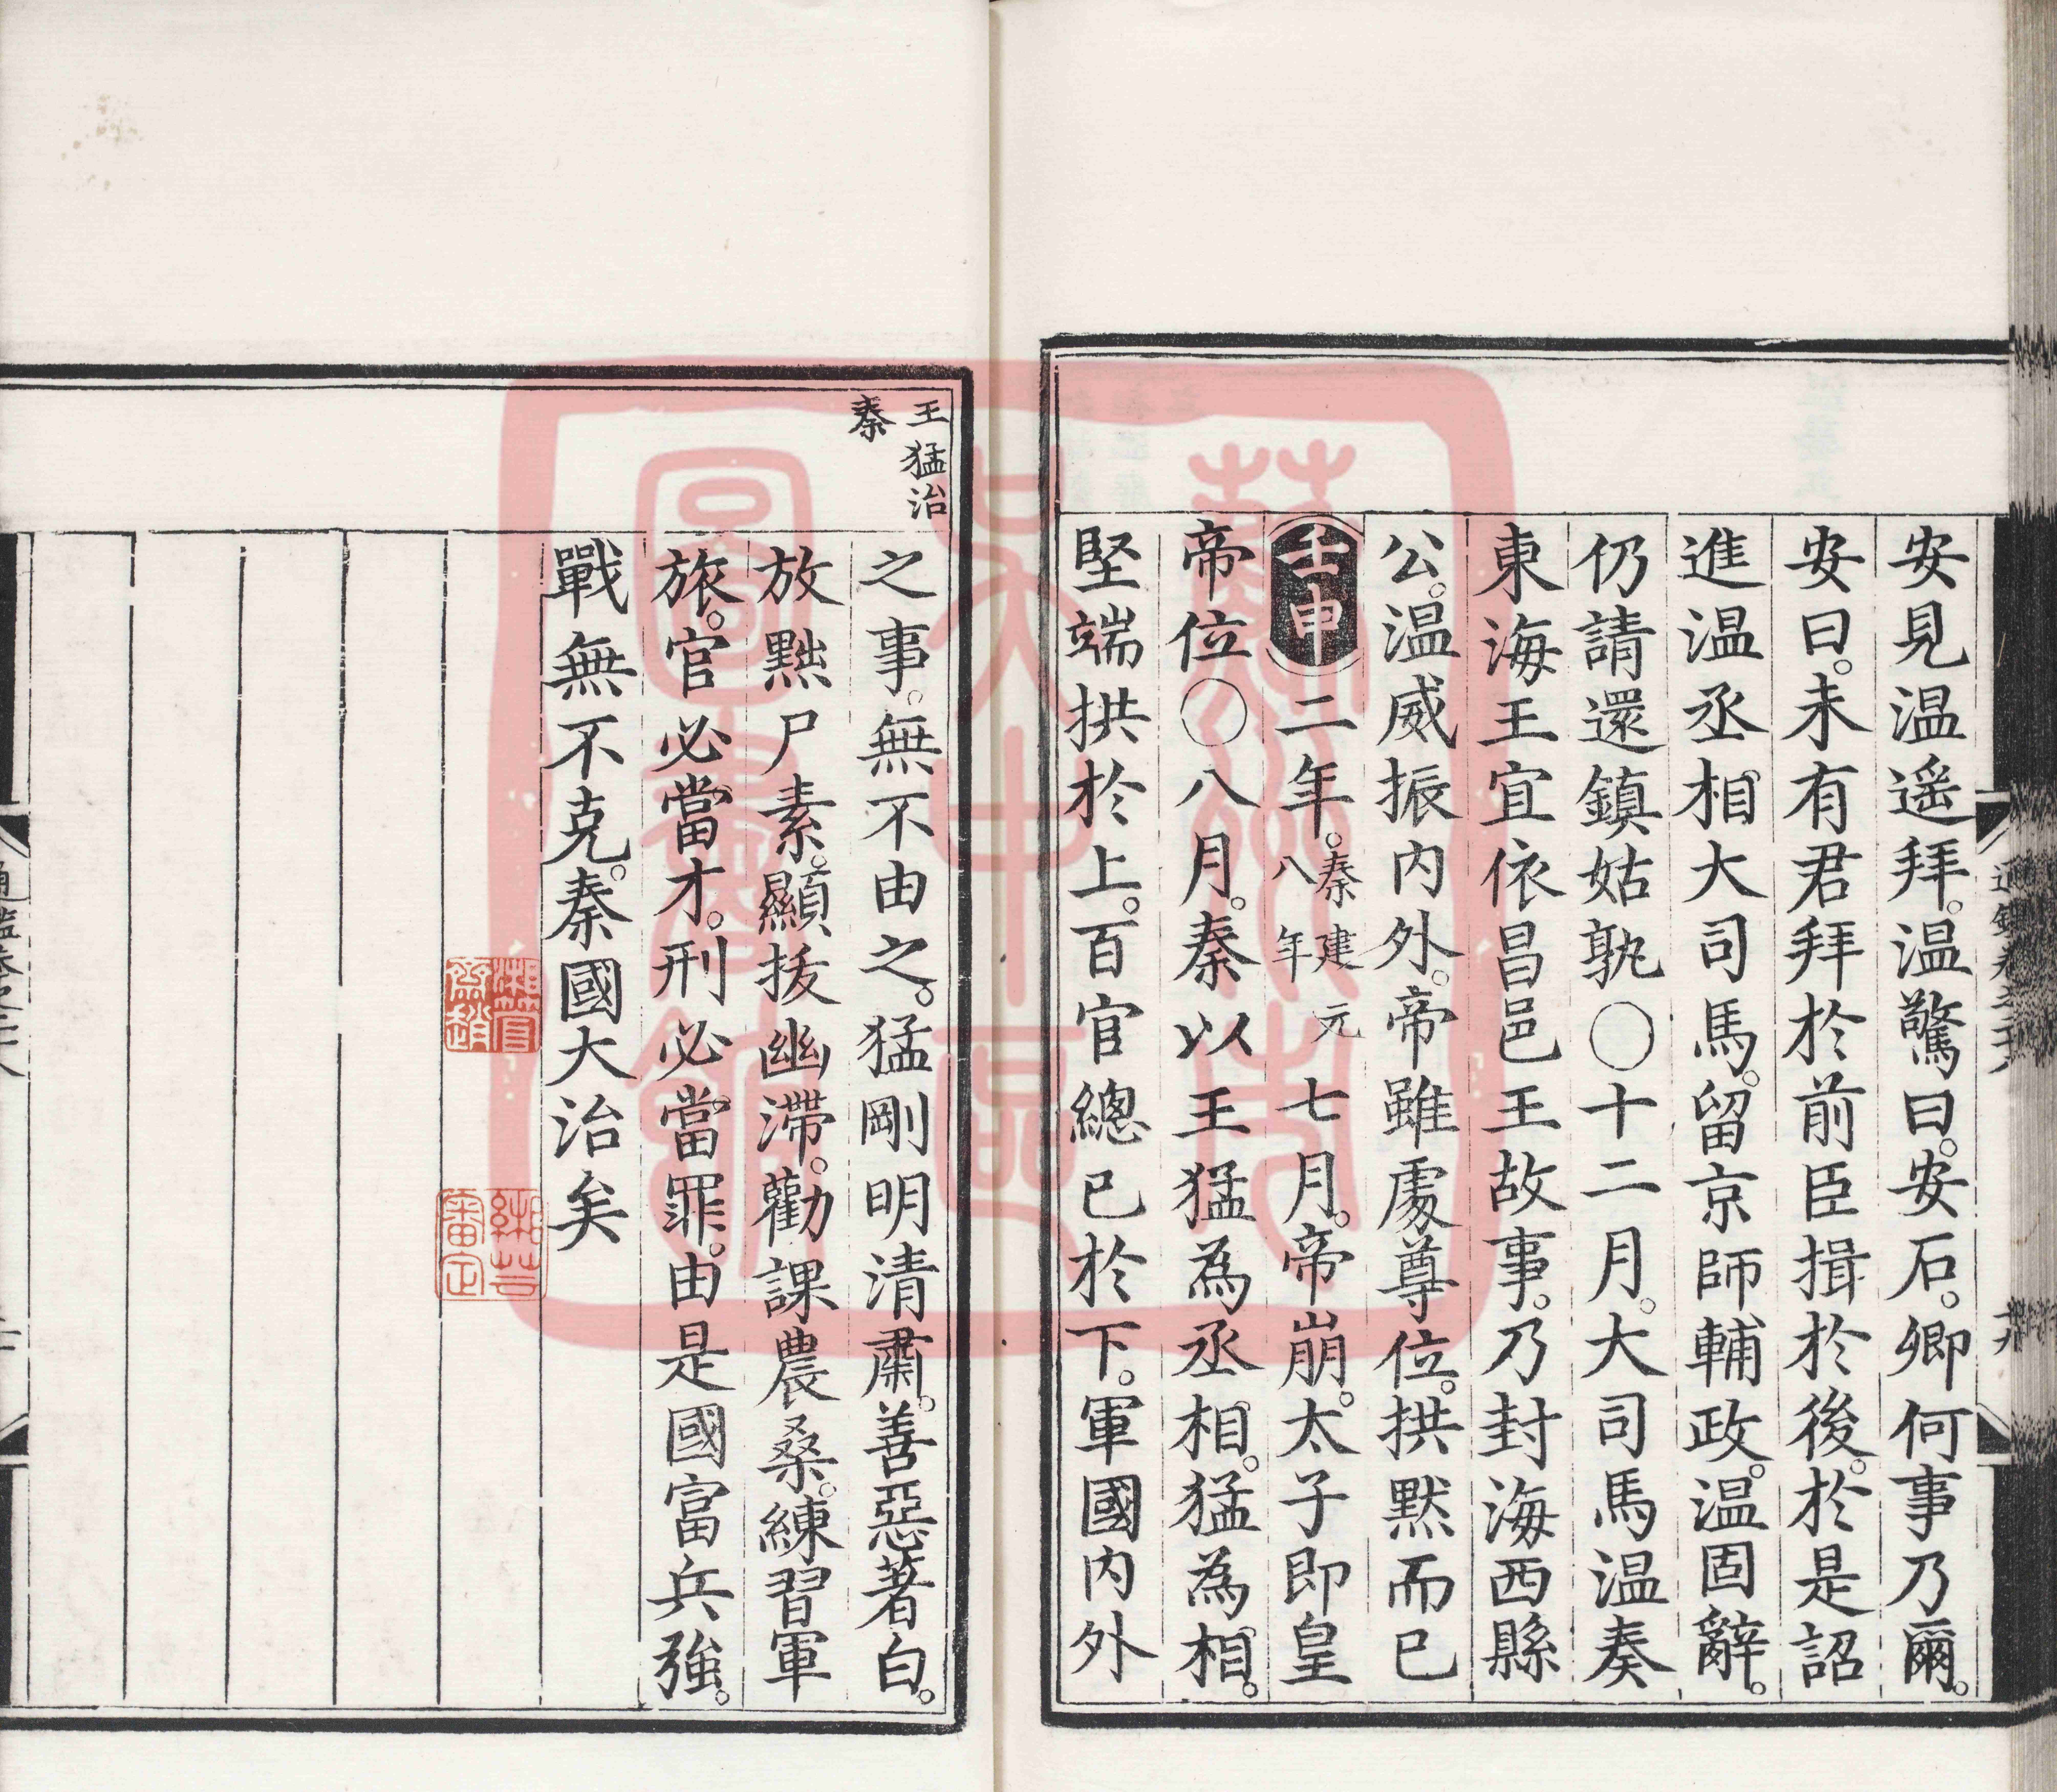 安見温遥拜。温驚曰。安石。卿何事乃爾。
安曰。未有君拜於前臣揖於後。於是詔
進温丞相大司馬。留京師輔政。温固辭。
仍請還鎮姑孰〇十二月。大司馬温奏
東海王宜依昌邑王故事。乃封海西縣
公。温威振内外。帝雖處尊位。拱默而已
壬申二年。秦建元八年七月。帝崩。太子即皇
帝位〇八月。秦以王猛為丞相。猛為相。
堅端拱於上。百官總已於下。軍國内外
王猛治
秦
之事。無不由之。猛剛明清肅。善惡著白。
放黜尸素。顯拔幽滯。勸課農桑。練習軍
旅。官必當才。刑必當罪。由是國富兵強。
戰無不克。秦國大治矣